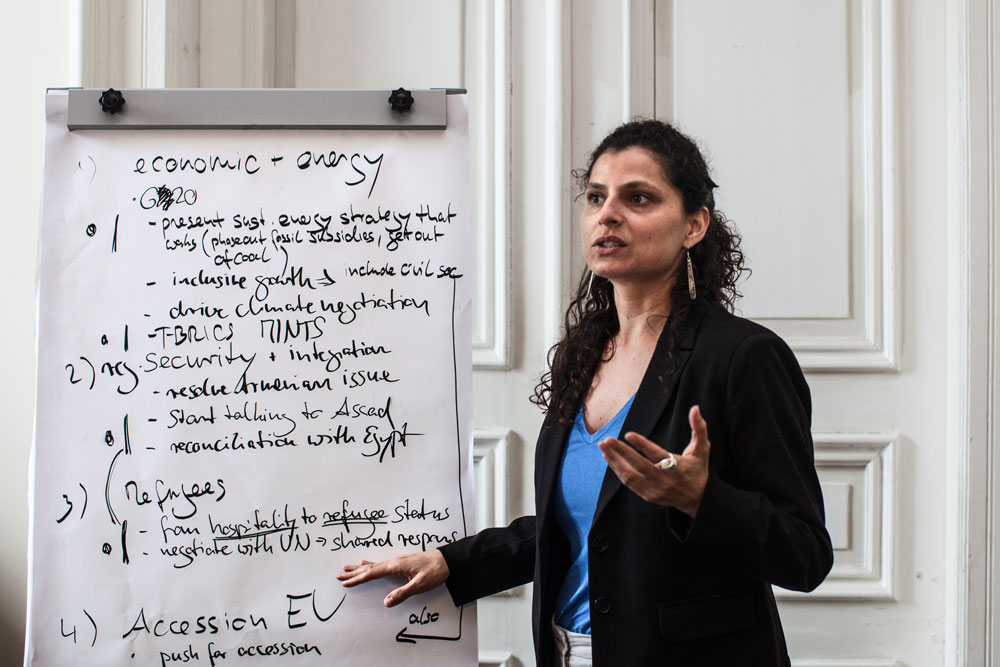 1) economic + energy
· G20
- present sust. energy strategy that
works (phaseout fossil subsidies, get out
of coal)
- inclusive growth → include civil soc
- drive climate negotiation
- T-BRICS MINTS
2) reg. Security + integration
- resolve Armenian issue
- Start talking to Assad
- reconciliation with Egypt
3) Refugees
- from hospitality to refugee status
- negotiate with UN → shared respons
4) Accession EU
also
· push for accession